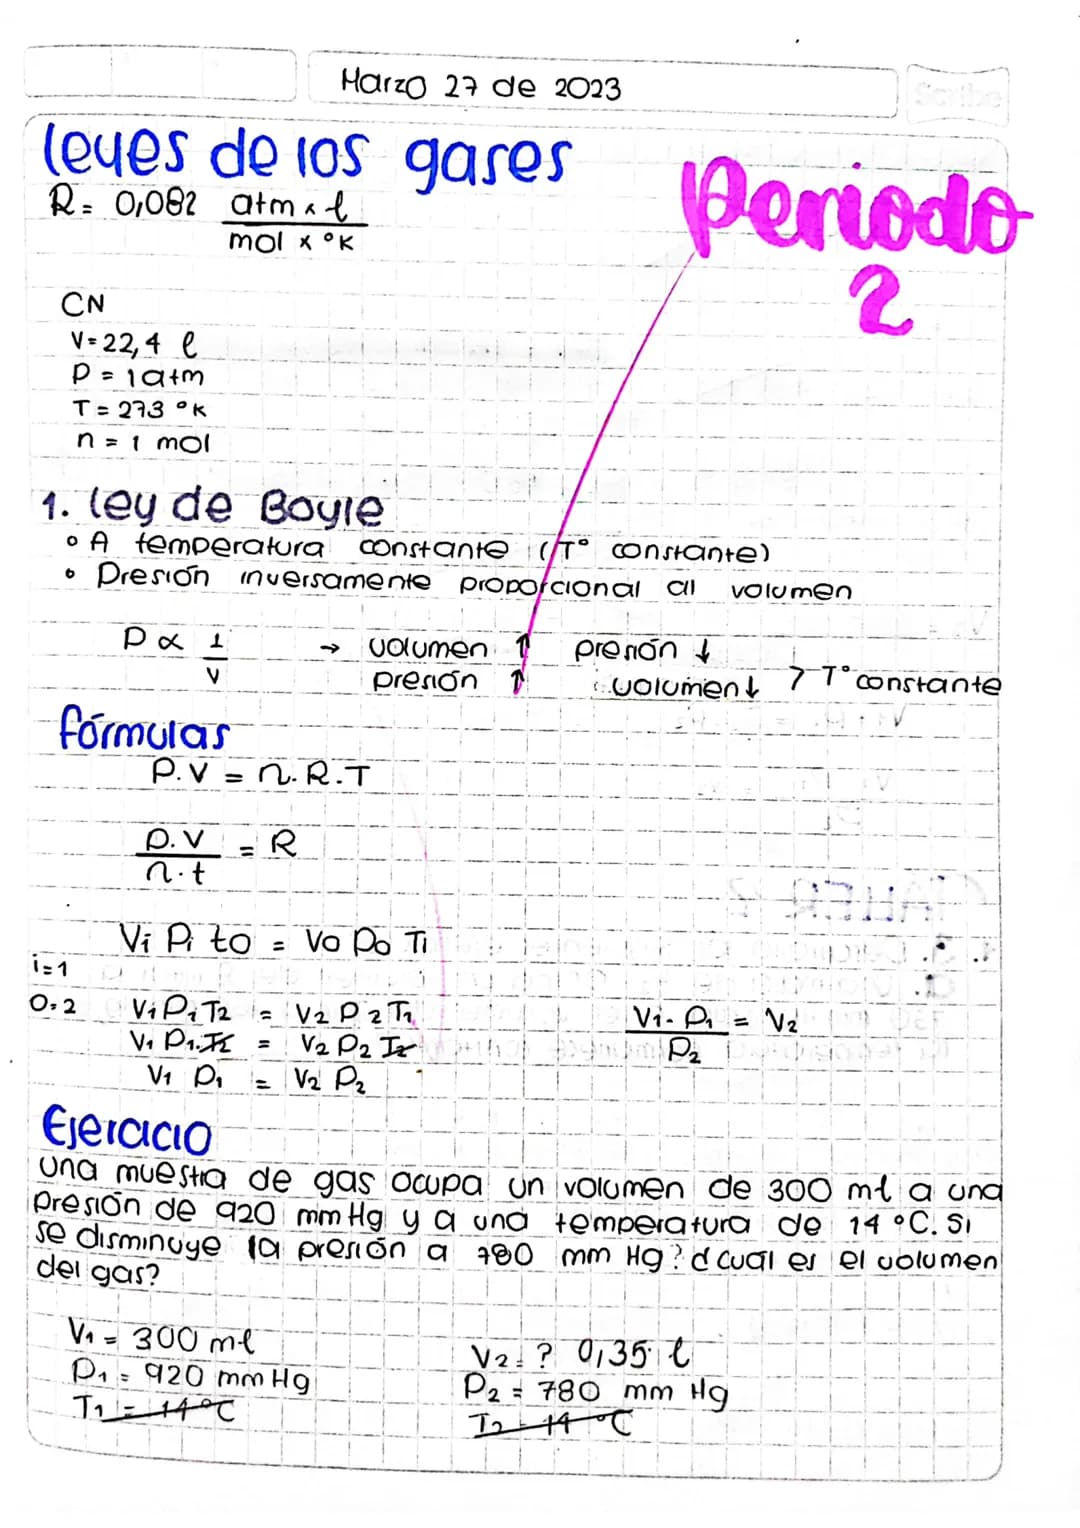 Marzo 27 de 2023
Scribe
leyes de los gases
Periodo
2
R = 0,082 atm x l
mol x °K
CN
V = 22,4 l
P = 1 atm
T = 273 °K
n = 1 mol
1. ley de Boyle
° A temperatura constante (T° constante)
° Presión inversamente proporcional al volumen
P ∝ 1/V → volumen ↑ presión ↓
presión ↑ volumen ↓ > T° constante
fórmulas
P.V = n.R.T
P.V / n.t = R
Vi Pi to = Vo Po Ti
i=1
O=2 Vi Pi T2 = V2 P2 T1
V1 P1.T2 = V2 P2 T2
V1 P1 = V2 P2
V1- P1 / P2 = V2
Ejercicio
una muestra de gas ocupa un volumen de 300 ml a una
presión de 920 mm Hg y a una temperatura de 14 °C. Si
se disminuye la presión a 780 mm Hg? d cual es el volumen
del gas?
V1 = 300 ml
P1 = 920 mm Hg
T1 = 14 °C
V2 = ? 0,35 l
P2 = 780 mm Hg
T2 = 14 °C